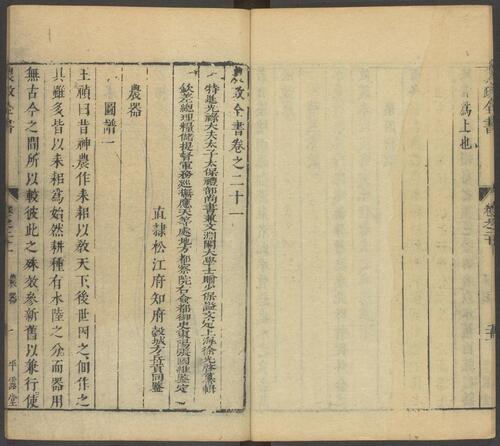 爲上也
農政全書卷之二十一
特進光祿大夫太子太保禮部尚書兼文淵閣大學士贈少保謚文定上海徐光啓纂輯
欽差總理糧儲提督軍務巡撫應天等處地方都察院右僉都御史東陽張國維鑒定
直隸松江府知府穀城方岳貢同鑒
農器
圖譜一
王禎曰昔神農作耒耜以敎天下後世因之佃作之
具雖多皆以耒耜爲始然耕種有水陸之分而器用
無古今之間所以較彼此之殊效參新舊以兼行使
農政全書
卷之二十一
農器
一
平露堂